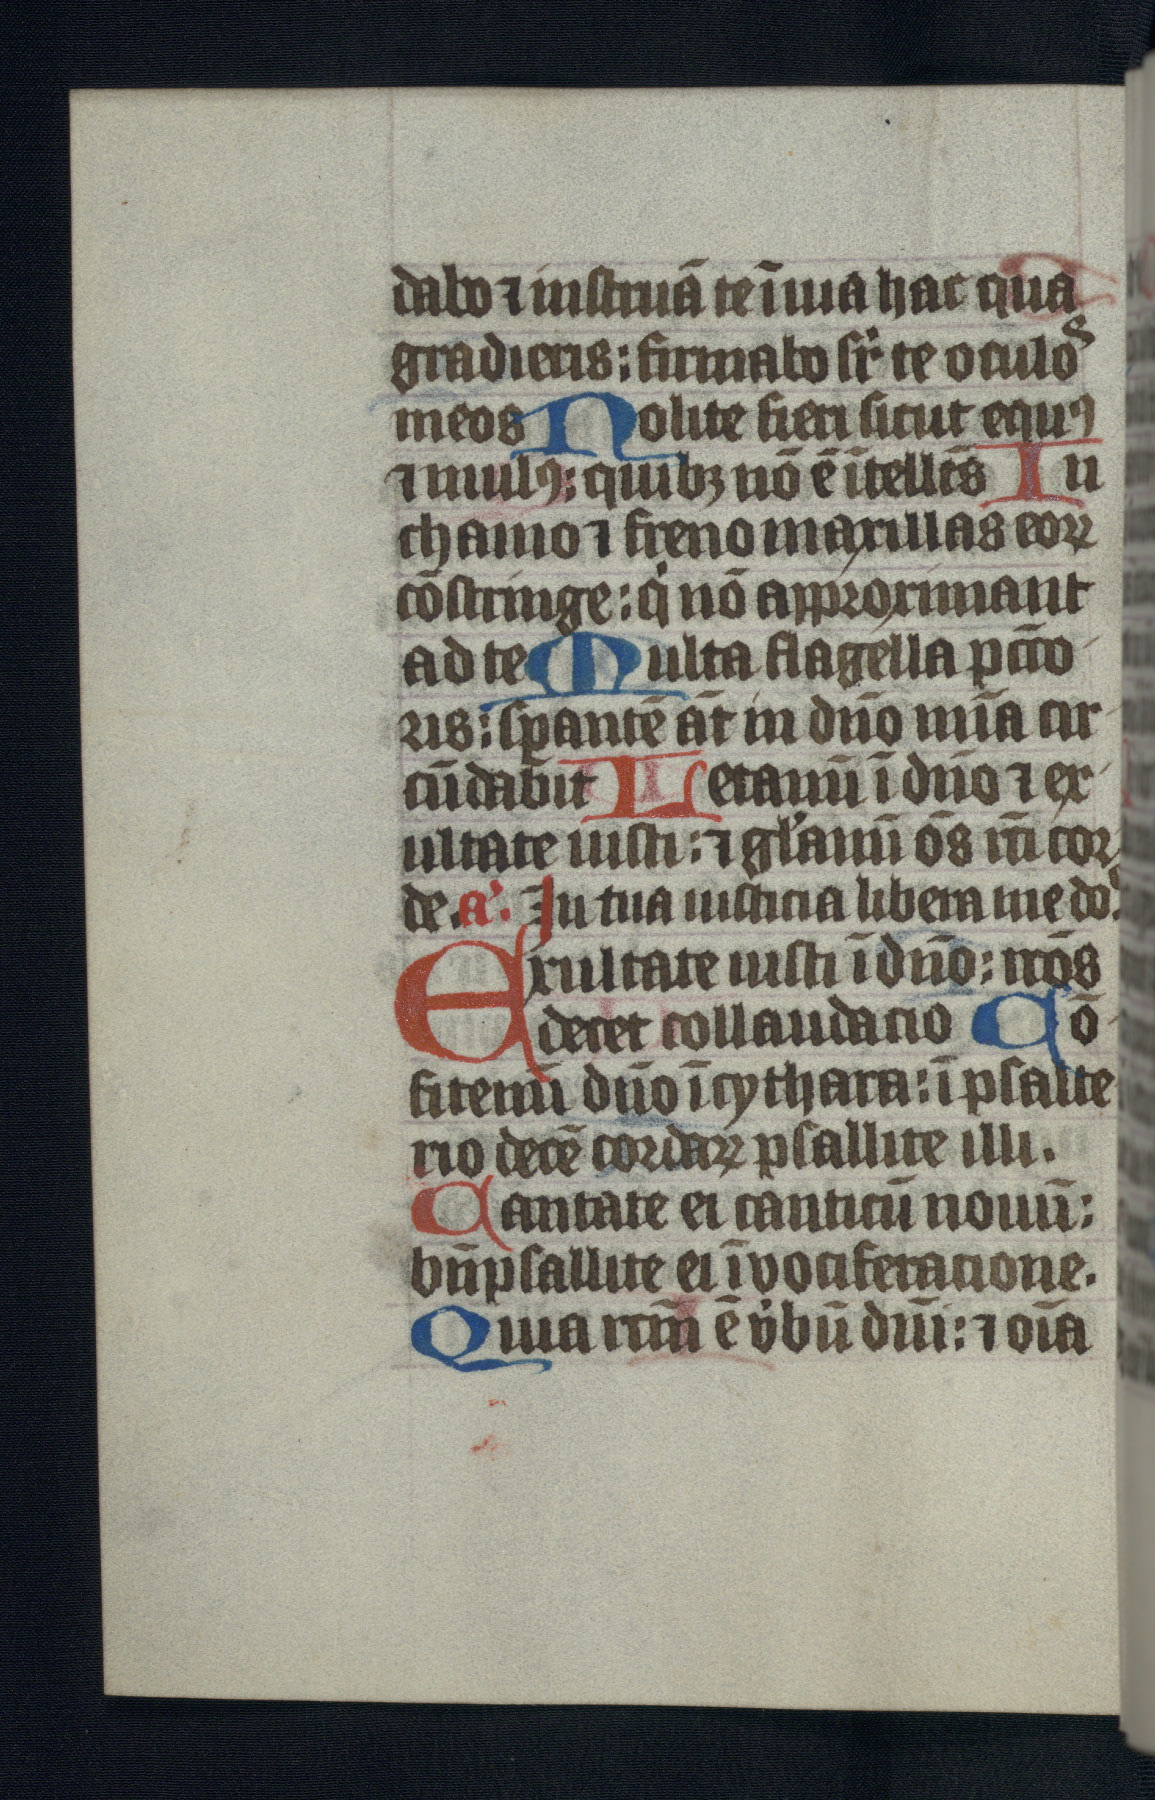 dabo ⁊ instruā te ī uia hac qua
gradieris: firmabo sr̄ te oculos
meos Nolite fieri sicut equꝰ
⁊ mulꝰ: quibꝫ nō ē ītellc̄s In
chamo ⁊ freno maxillas eoꝝ
cōstringe: q̇ nō approximant
ad te Multa flagella pcc̄o
ris: sꝑantē āt in dn̄o mīa cir
cūdabit Letamī ī dn̄o ⁊ ex
ultate iusti: ⁊ gl̓amī om̄s rc̄i cor
de. a'. In tua iusticia libera me do.
Exultate iusti ī dn̄o: rc̄os
decet collaudacio Cō
fitemī dn̄o ī cythara: ī psalte
rio decē cordaꝝ psallite illi.
Cantate ei canticū nouū:
bn̄ psallite ei ī vociferacione.
Quia rc̄m ē v̓bū dn̄i: ⁊ oīa